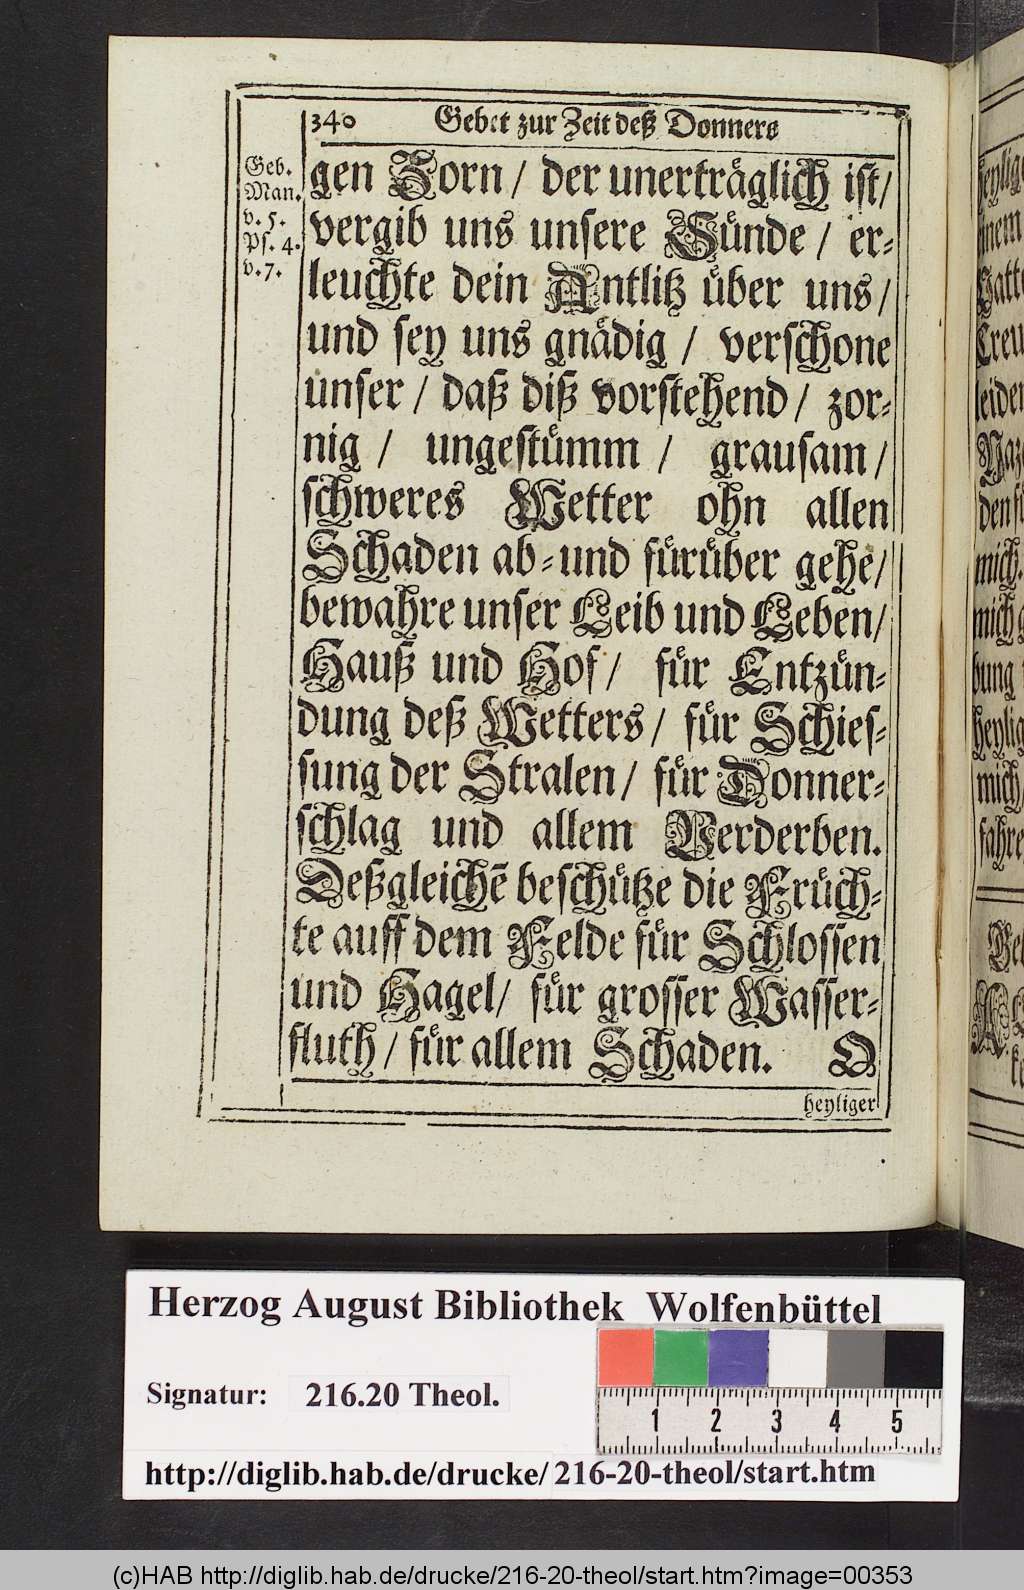 340 Gebet zur Zeit deß Donners
Geb.
Man.
v. 5.
Ps. 4.
v. 7.
gen Zorn / der unerträglich ist/
vergib uns unsere Sünde / er-
leuchte dein Antlitz über uns/
und sey uns gnädig / verschone
unser / daß diß vorstehend / zor-
nig / ungestümm / grausam /
schweres Wetter ohn allen
Schaden ab- und fürüber gehe/
bewahre unser Leib und Leben/
Hauß und Hof / für Entzün-
dung deß Wetters / für Schies-
sung der Stralen / für Donner-
schlag und allem Verderben.
Deßgleichē beschütze die Früch-
te auff dem Felde für Schlossen
und Hagel/ für grosser Wasser-
fluth / für allem Schaden. O
heyliger
Herzog August Bibliothek Wolfenbüttel
Signatur: 216.20 Theol.
1 2 3 4 5
http://diglib.hab.de/drucke/ 216-20-theol/start.htm
(c)HAB http://diglib.hab.de/drucke/216-20-theol/start.htm?image=00353